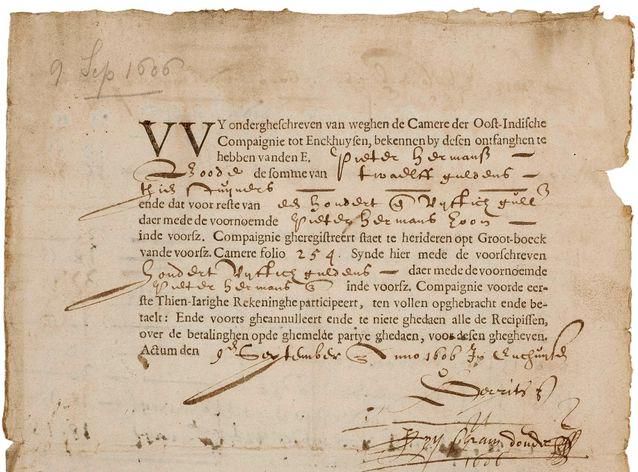 9 Sep 1606
VVY ondergheschreven van weghen de Camere der Oost-Indische
Compaignie tot Enckhuysen, bekennen by desen ontfanghen te
hebben vanden E. Pieter Hermansz
de somme van twaelff guldens
ende dat voor reste van hondert vyftich
daer mede de voornoemde Pieter Hermans zoon
inde voorsz. Compaignie gheregistreert staet te herideren opt Groot-boeck
vande voorsz. Camere folio 254. Synde hier mede de voorschreven
hondert vyftich guldens daer mede de voornoemde
Pieter Hermans inde voorsz. Compaignie voorde eer-
ste Thien-Iarighe Rekeninghe participeert, ten vollen opghebracht ende be-
taelt: Ende voorts gheannulleert ende te niete ghedaen alle de Recipissen,
over de betalinghen opde ghemelde partye ghedaen, voor desen ghegheven.
Actum den 9 September Anno 1606
1606